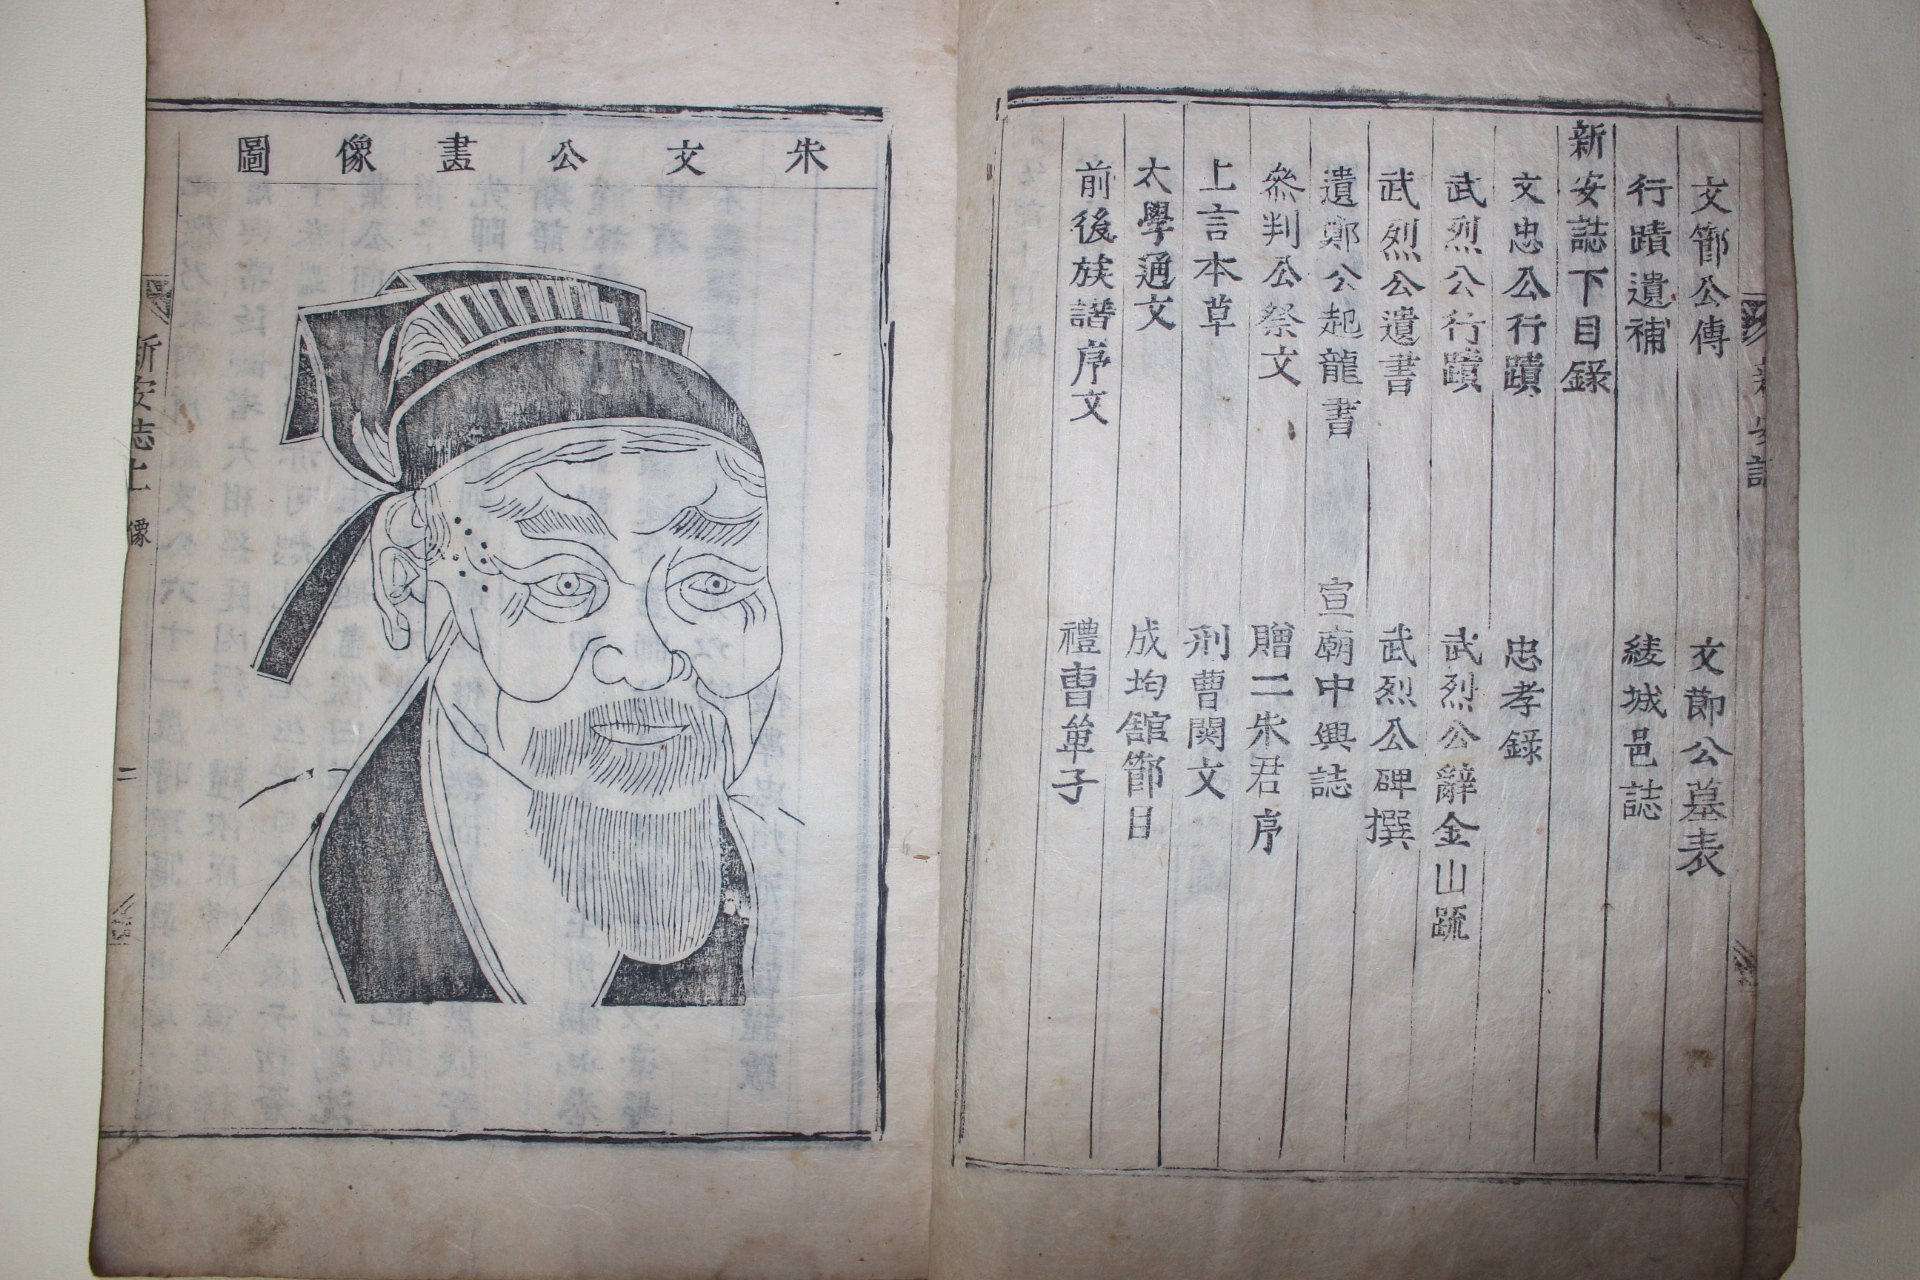 文節公傳 文節公墓表
行蹟遺補 綾城邑誌
新安誌下目録
文忠公行蹟 忠孝録
武烈公行蹟 武烈公辭金山䟽
武烈公遺書 武烈公碑撰
遺鄭公起龍書 宣廟中興誌
叅判公祭文 贈二朱君序
上言本草 刑曹関文
太學通文 成均舘節目
前後族譜序文 禮曹單子
新安誌
朱文公畫像圖
新安誌上 像 二